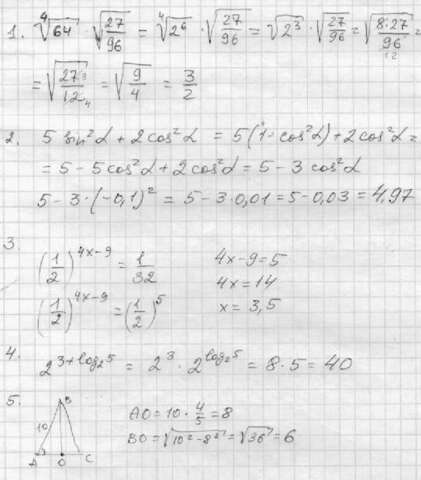 1. ⁴√64 · √(27/96) = ⁴√(2⁶) · √(27/96) = √(2³) · √(27/96) = √(8·27/96) =
= √(27/12) = √(9/4) = 3/2
2. 5 sin²α + 2cos²α = 5(1-cos²α)+2cos²α =
= 5 - 5cos²α + 2cos²α = 5 - 3cos²α
5 - 3·(-0,1)² = 5 - 3·0,01 = 5 - 0,03 = 4,97
3
(1/2)^(4x-9) = 1/32 4x-9=5
(1/2)^(4x-9) = (1/2)^5 4x=14
x = 3,5
4. 2^(3+log₂5) = 2³ · 2^(log₂5) = 8·5 = 40
5. B AO = 10 · 4/5 = 8
10 BO = √(10²-8²) = √36 = 6
A O C